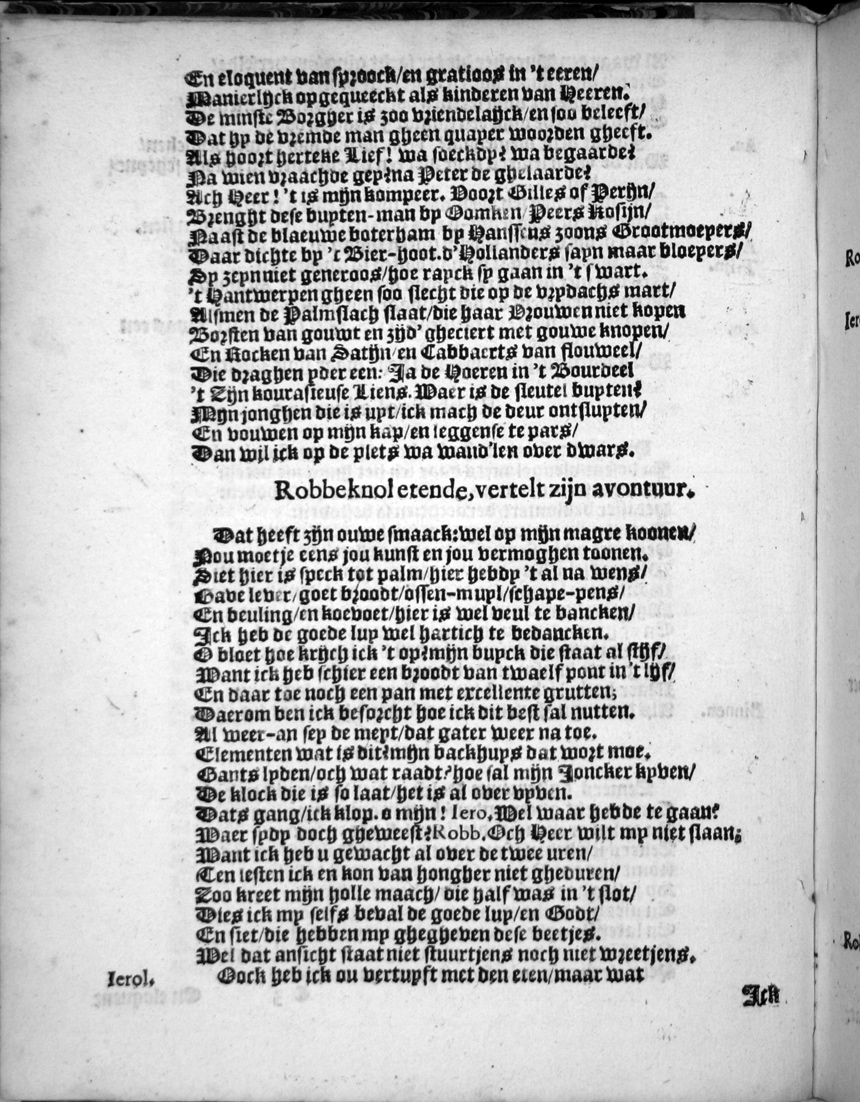 En eloquent van sproock/en gratioos in 't eeren/
Manierlijck opgequeeckt als kinderen van Heeren.
De minste Borgher is zoo vriendelaijck/en soo beleeft/
Dat hy de vremde man gheen quaper woorden gheeft.
Als hoort herteke Lief! wa soeckdy? wa begaarde?
Na wien vraachde gey?na Peter de ghelaarde?
Ach Heer! 't is mijn kompeer. Hoort Gilles of Peryn/
Brenght dese buyten-man by Oomken Peers Kosijn/
Naast de blaeuwe boterham by Hanssens zoons Grootmoeyers/
Daar dichte by 't Bier-hoot. d'Hollanders sayn maar bloeyers/
Sy zeyn niet generoos/hoe rayck sy gaan in 't swart.
't Hantwerpen gheen soo slecht die op de vrydachs mart/
Alsmen de Palmslach slaat/die haar Vrouwen niet kopen
Borsten van gouwt en zijd' gheciert met gouwe knopen/
En Rocken van Satijn/en Tabbaerts van flouweel/
Die draghen yder een: Ja de Hoeren in 't Bourdeel
't Zijn kourasieuse Liens. Waer is de sleutel buyten?
Mijn jonghen die is uyt/ick mach de deur ontsluyten/
En vouwen op mijn kap/en leggense te pars/
Dan wil ick op de plets wa wand'len over dwars.
Robbeknol etende, vertelt zijn avontuur.
Dat heeft zijn ouwe smaack: wel op mijn magre koonen/
Nou moetje eens jou kunst en jou vermoghen toonen.
Siet hier is speck tot palm/hier hebdy 't al na wens/
Gave lever/goet broodt/ossen-muyl/schape-pens/
En beuling/en koevoet/hier is wel veul te bancken/
Ick heb de goede luy wel hartich te bedancken.
O bloet hoe krijch ick 't op?mijn buyck die staat al stijf/
Want ick heb schier een broodt van twaelf pont in 't lijf/
En daar toe noch een pan met excellente grutten;
Daerom ben ick besorcht hoe ick dit best sal nutten.
Al weer-an sey de meyt/dat gater weer na toe.
Elementen wat is dit?mijn backhuys dat wort moe.
Gants lyden/och wat raadt?hoe sal mijn Joncker kyven/
De klock die is so laat/het is al over vyven.
Dats gang/ick klop. o mijn! Iero. Wel waar hebde te gaan?
Waer sydy doch gheweest? Robb. Och Heer wilt my niet slaan;
Want ick heb u gewacht al over de twee uren/
Ten lesten ick en kon van hongher niet gheduren/
Zoo kreet mijn holle maach/ die half was in 't slot/
Dies ick my selfs beval de goede luy/en Godt/
En siet/die hebben my ghegheven dese beetjes.
Wel dat ansicht staat niet stuurtjens noch niet wreetjens.
Ierol. Oock heb ick ou vertuyft met den eten/maar wat
Ick